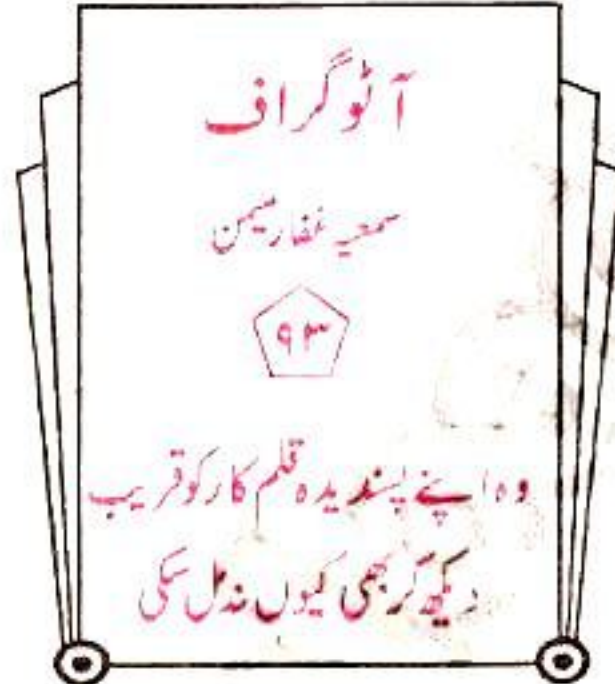 آٹو گراف
سمعیہ غفار میمن
۹۳
وہ اپنے پسندیدہ قلم کار کو قریب
دیکھ کر بھی کیوں نہ مل سکی